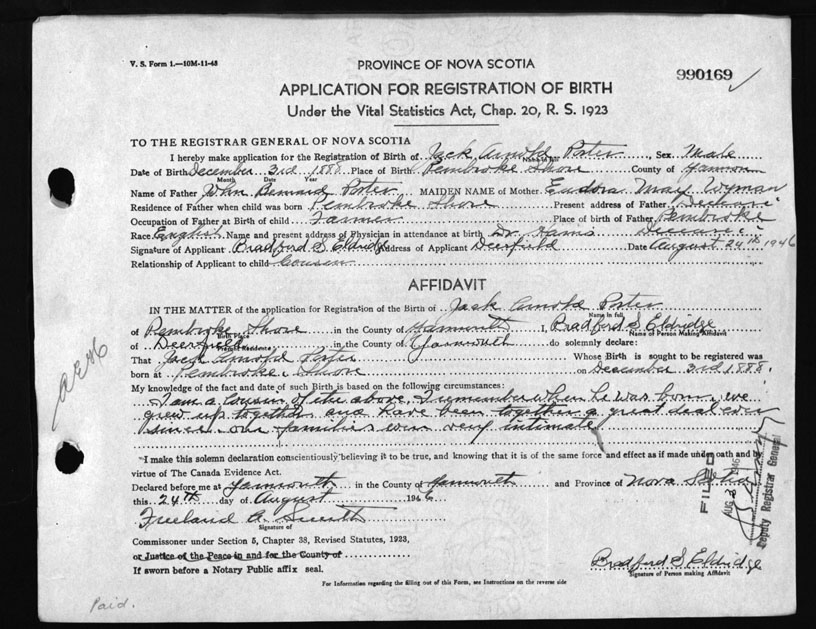 V. S. Form 1.—10M-11-45
PROVINCE OF NOVA SCOTIA
990169
APPLICATION FOR REGISTRATION OF BIRTH
Under the Vital Statistics Act, Chap. 20, R. S. 1923
TO THE REGISTRAR GENERAL OF NOVA SCOTIA
I hereby make application for the Registration of Birth of Jack Arnold Porter, Sex Male
Date of Birth December 3rd 1888 Place of Birth Pembroke Shore County of Yarmouth
Month Date Year
Name of Father John Bernard Porter MAIDEN NAME of Mother Eudora May Wyman
Residence of Father when child was born Pembroke Shore Present address of Father
Occupation of Father at Birth of child Farmer Place of birth of Father Pembroke
Race English Name and present address of Physician in attendance at birth Dr.
Signature of Applicant Bradford S Eldridge Address of Applicant Deerfield Date August 24th 1946
Relationship of Applicant to child Cousin
AFFIDAVIT
IN THE MATTER of the application for Registration of the Birth of Jack Arnold Porter
Name in full
of Pembroke Shore in the County of Yarmouth I, Bradford S Eldridge
Name of Person making Affidavit
of Deerfield in the County of Yarmouth do solemnly declare:
That Jack Arnold Porter Whose Birth is sought to be registered was
born at Pembroke Shore on December 3rd 1888.
My knowledge of the fact and date of such Birth is based on the following circumstances:
I am a Cousin of the above, I remember when he was born, we
grew up together and have been together a great deal ever
since our families were very intimate
"I make this solemn declaration conscientiously believing it to be true, and knowing that it is of the same force and effect as if made under oath and by
virtue of The Canada Evidence Act.
Declared before me at Yarmouth in the County of Yarmouth and Province of Nova Scotia
this 24th day of August 1946
Freeland A. Smith
Signature of
Commissioner under Section 5, Chapter 38, Revised Statutes, 1923,
or Justice of the Peace in and for the County of
If sworn before a Notary Public affix seal.
Bradford S Eldridge
Signature of Person making Affidavit
For Information regarding the filling out of this Form, see Instructions on the reverse side
FILED
Deputy Registrar General
Paid.